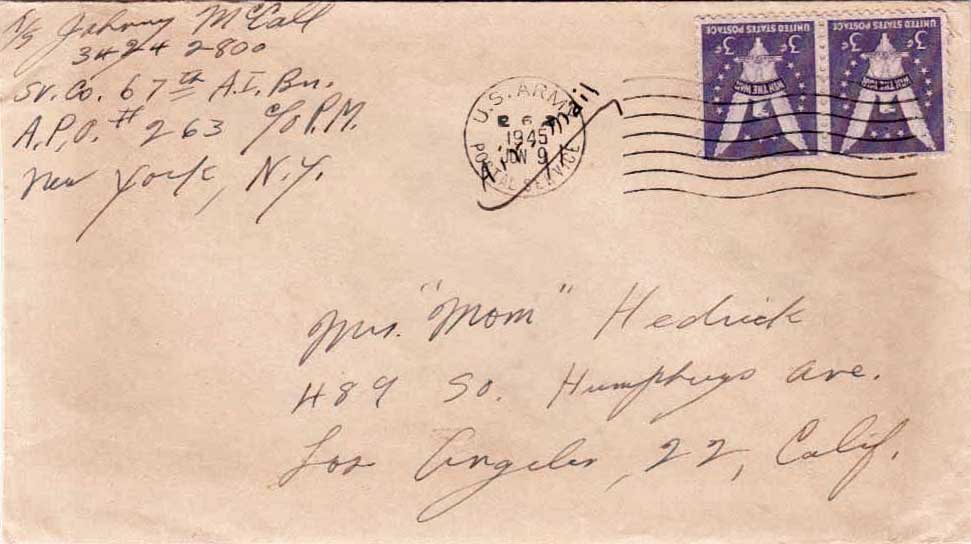 T/5 Johnny McCall
3424 2800
Sv. Co. 67th A.I. Bn.
A.P.O. # 263 c/o P.M.
New York, N.Y.
U.S. ARMY
1945
JUN 9
POSTAL SERVICE
Air Mail
UNITED STATES POSTAGE
3¢ 3¢
WIN THE WAR
UNITED STATES POSTAGE
3¢ 3¢
WIN THE WAR
Mrs. "Mom" Hedrick
489 So. Humphrys Ave.
Los Angeles, 22, Calif.